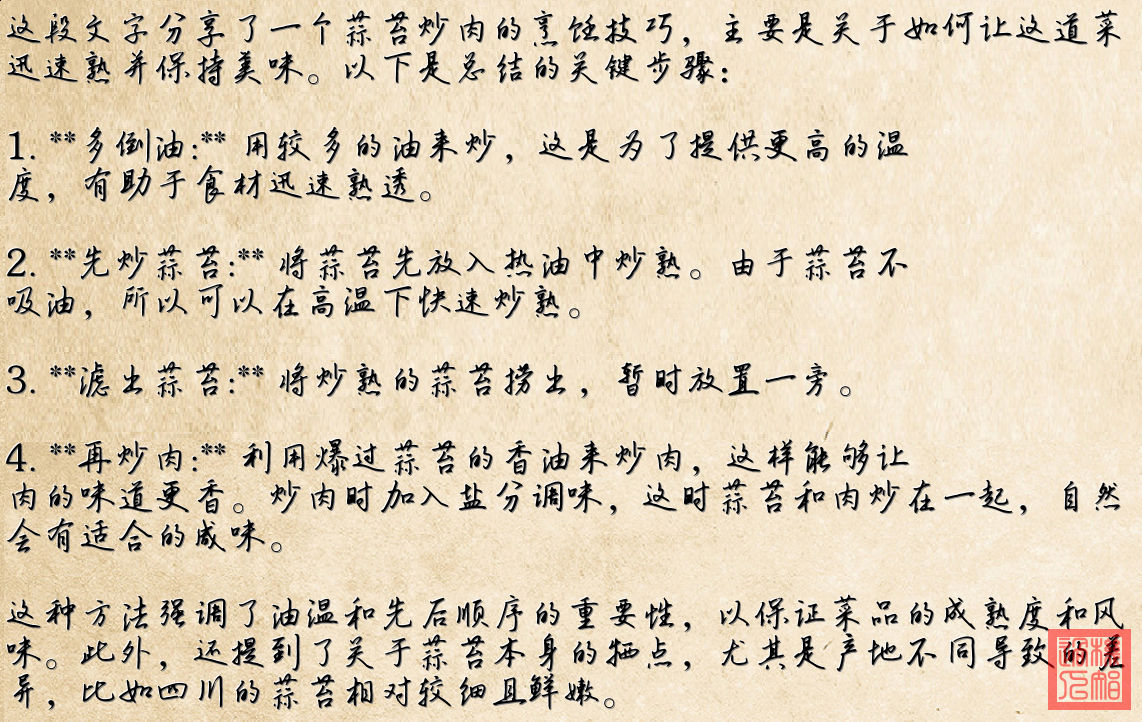 这段文字分享了一个蒜苔炒肉的烹饪技巧，主要是关于如何让这道菜
迅速熟并保持美味。以下是总结的关键步骤：
1. **多倒油:** 用较多的油来炒，这是为了提供更高的温
度，有助于食材迅速熟透。
2. **先炒蒜苔:** 将蒜苔先放入热油中炒熟。由于蒜苔不
吸油，所以可以在高温下快速炒熟。
3. **滤出蒜苔:** 将炒熟的蒜苔捞出，暂时放置一旁。
4. **再炒肉:** 利用爆过蒜苔的香油来炒肉，这样能够让
肉的味道更香。炒肉时加入盐分调味，这时蒜苔和肉炒在一起，自然
会有适合的咸味。
这种方法强调了油温和先后顺序的重要性，以保证菜品的成熟度和风
味。此外，还提到了关于蒜苔本身的特点，尤其是产地不同导致的差
异，比如四川的蒜苔相对较细且鲜嫩。